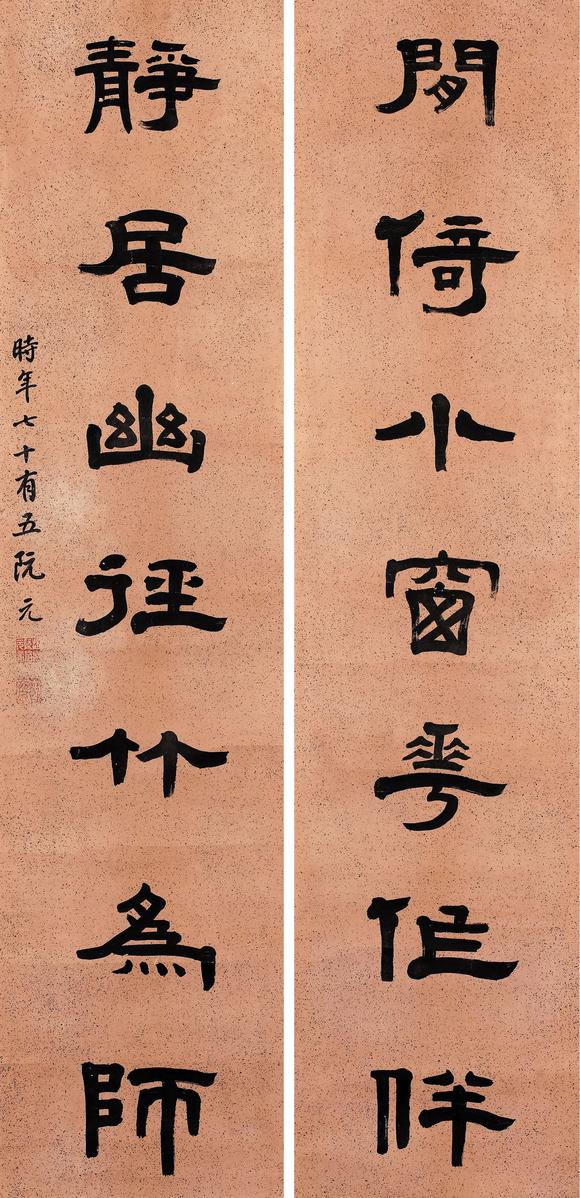 閒倚小窗華作伴
靜居幽徑竹為師
時年七十有五阮元